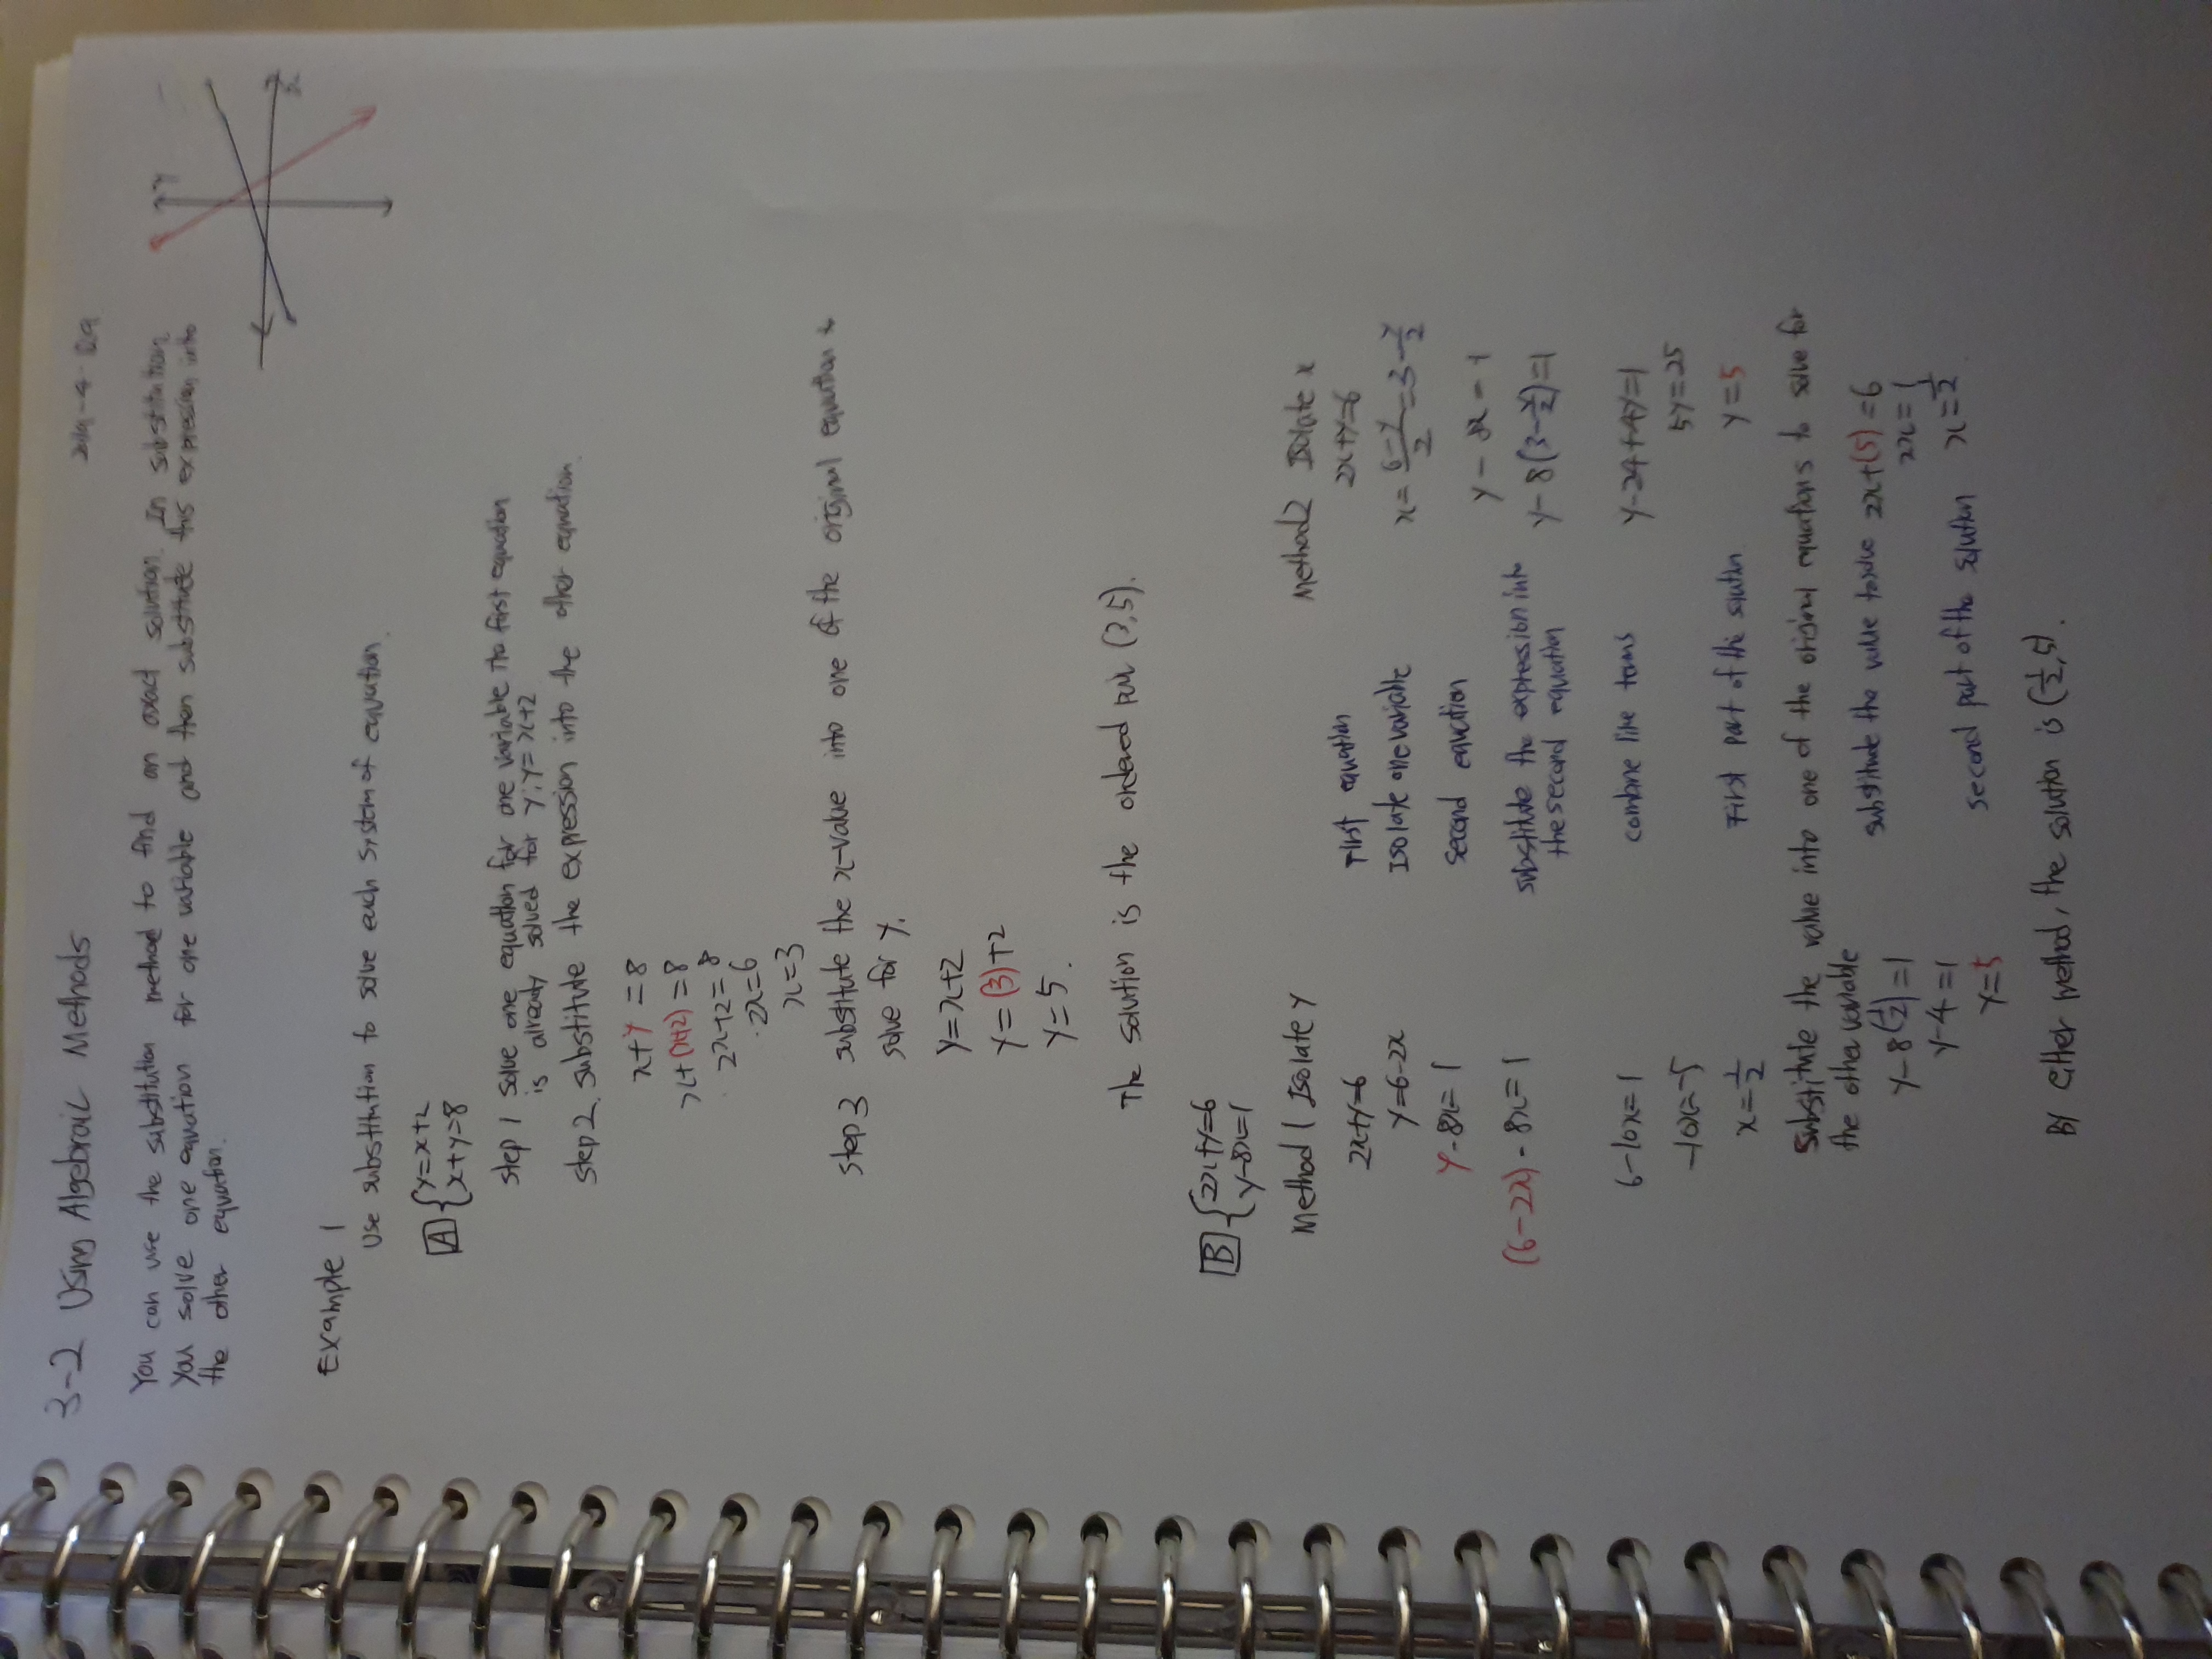 3-2 Using Algebraic Methods
You can use the substitution method to find an exact solution. In substitution
You solve one equation for one variable and then substitute this expression into
the other equation.
y
x
Example 1
Use substitution to solve each system of equation.
A { y=x+2
x+y=8
step 1 solve one equation for one variable The first equation
is already solved for y; y=x+2
step 2. substitute the expression into the other equation.
x+y=8
x+(x+2)=8
2x+2=8
2x=6
x=3
step 3 substitute the x-value into one of the original equation to
solve for y.
y=x+2
y=(3)+2
y=5.
The solution is the ordered pair (3,5).
B { 2x+y=6
y-8x=1
Method 1 Isolate y Method 2 Isolate x
2x+y=6 First equation 2x+y=6
y=6-2x Isolate one variable x=\frac{6-y}{2}=3-\frac{y}{2}
y-8x=1 second equation y-8x=1
(6-2x)-8x=1 substitute the expression into y-8(3-\frac{y}{2})=1
the second equation
6-10x=1 combine like terms y-24+4y=1
-10x=-5 5y=25
x=\frac{1}{2} First part of the solution y=5
Substitute the value into one of the original equations to solve for
the other variable
y-8(\frac{1}{2})=1 substitute the value to solve 2x+(5)=6
y-4=1 2x=1
y=5 second part of the solution x=\frac{1}{2}
By either method, the solution is (\frac{1}{2},5).